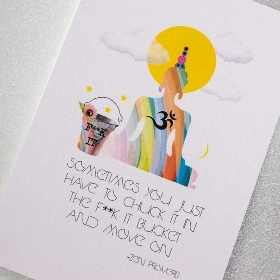 F**K
IT
ॐ
SOMETIMES YOU JUST
HAVE TO CHUCK IT IN
THE F**K IT BUCKET
AND MOVE ON
-ZEN PROVERB